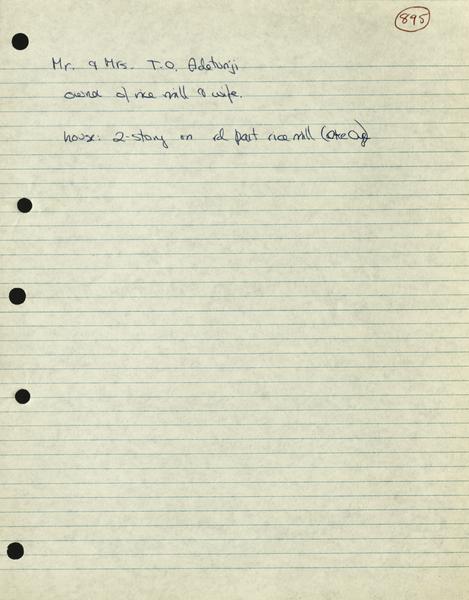 895
Mr. & Mrs. T.O. Adetunji
owner of rice mill & wife.
house: 2-story on rd past rice mill (Oke